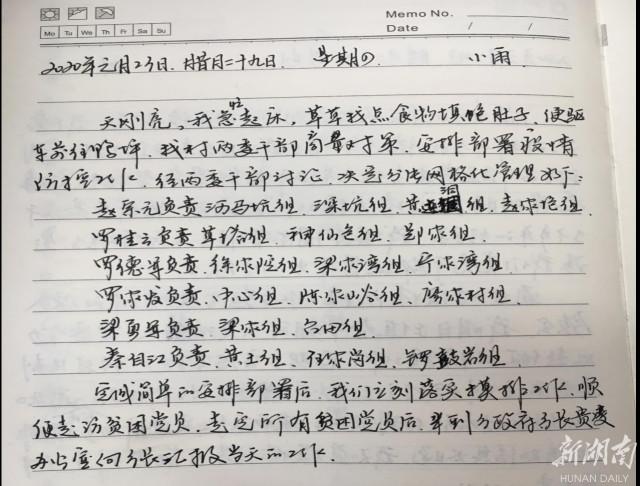 Memo No.
Mo Tu We Th Fr Sa Su
Date / /
2020年元月23日.腊月二十九日. 星期四 小雨
天刚亮,我急忙起床,草草找点食物填饱肚子,便驱
车前往鸭坪.我村两委干部商量对策.安排部署疫情
防控工作.经两委干部讨论.决定分片网格化管理如下:
赵宗元负责河马坑组.深坑组.黄洞组.赵家包组.
罗桂云负责草塔组.神仙包组.郭家组.
罗德导负责.徐家院组.梁家湾组.
罗家发负责.中心组.陈家山谷组.唐家村组.
梁勇导负责.梁家组.台田组.
秦自江负责.黄土组.任家岗组.锣鼓岩组.
完成简单的安排部署后.我们立刻落实摸排工作.顺
便走访贫困党员.走完所有贫困党员后.来到乡政府乡长黄委
办公室向乡长汇报当天的工作.
新湖南
HUNAN DAILY